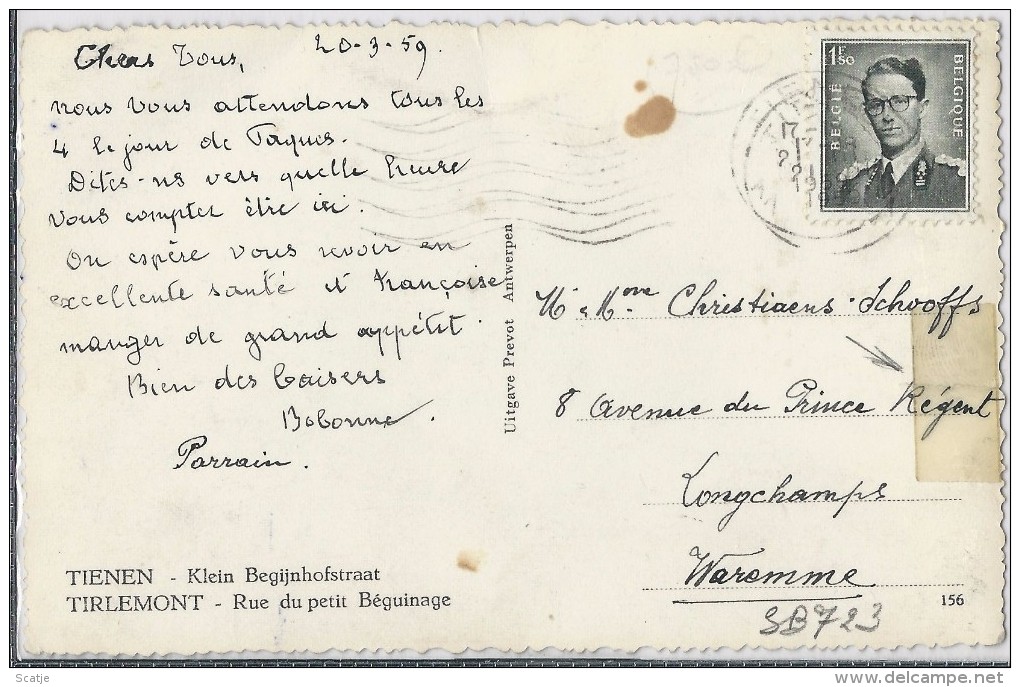 Chers Tous,
20-3-59.
nous vous attendons tous les
4 le jour de Pâques.
Dites-ns vers quelle heure
vous compter être ici.
On espère vous revoir en
excellente santé et Françoise
manger de grand appétit.
Bien des baisers
Bobonne.
Parrain.
TIENEN - Klein Begijnhofstraat
TIRLEMONT - Rue du petit Béguinage
Uitgave Prevot Antwerpen
1F50
BELGIË
BELGIQUE
M. & Mme Christiaens-Schooffs
8 Avenue du Prince Régent
Longchamps
Waremme
156
SB723
Scatje